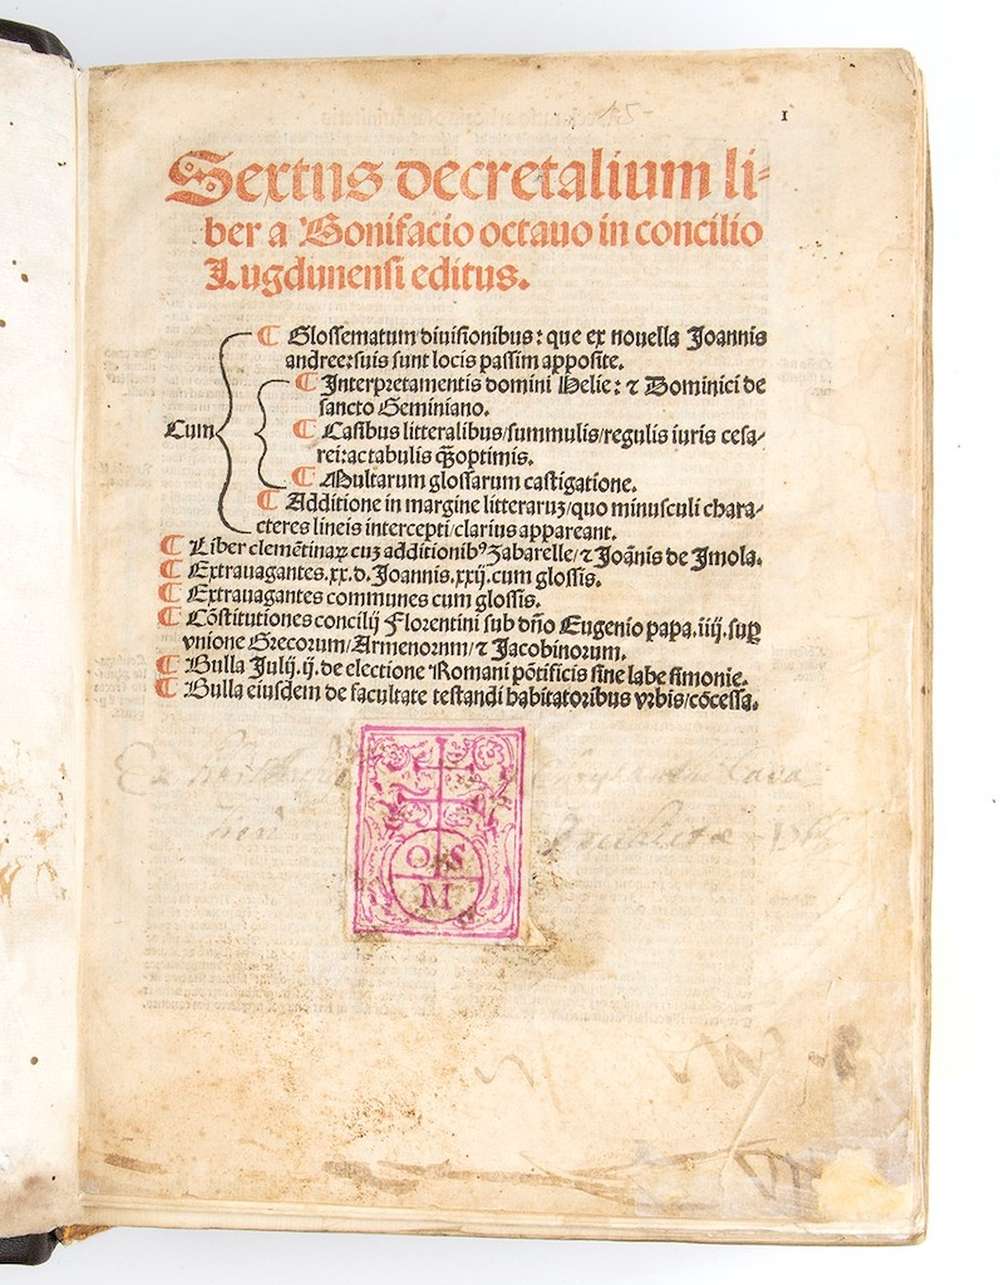 1
Sextus decretalium li-
ber a Bonifacio octauo in concilio
Lugdunensi editus.
Cum
¶ Glossematum diuisionibus: que ex nouella Joannis
andree: suis sunt locis passim apposite.
¶ Interpretamentis domini Helie: ⁊ Dominici de
sancto Geminiano.
¶ Casibus litteralibus/summulis/regulis iuris cesa-
rei: ac tabulis qꝫ optimis.
¶ Multarum glossarum castigatione.
¶ Additione in margine litteraruꝫ/quo minusculi chara-
cteres lineis intercepti/clarius appareant.
¶ Liber clemētinaꝝ cuꝫ additionibꝰ Zabarelle/⁊ Joānis de Imola.
¶ Extrauagantes.xx.d.Joannis.xxij.cum glossis.
¶ Extrauagantes communes cum glossis.
¶ Cōstitutiones concilij Florentini sub dño Eugenio papa.iiij.suꝑ
vnione Grecorum/Armenornm/⁊ Jacobinorum.
¶ Bulla Julij.ij.de electione Romani pōtificis sine labe simonie.
¶ Bulla eiusdem de facultate testandi habitatoribus vrbis/cōcessa.
O S
M